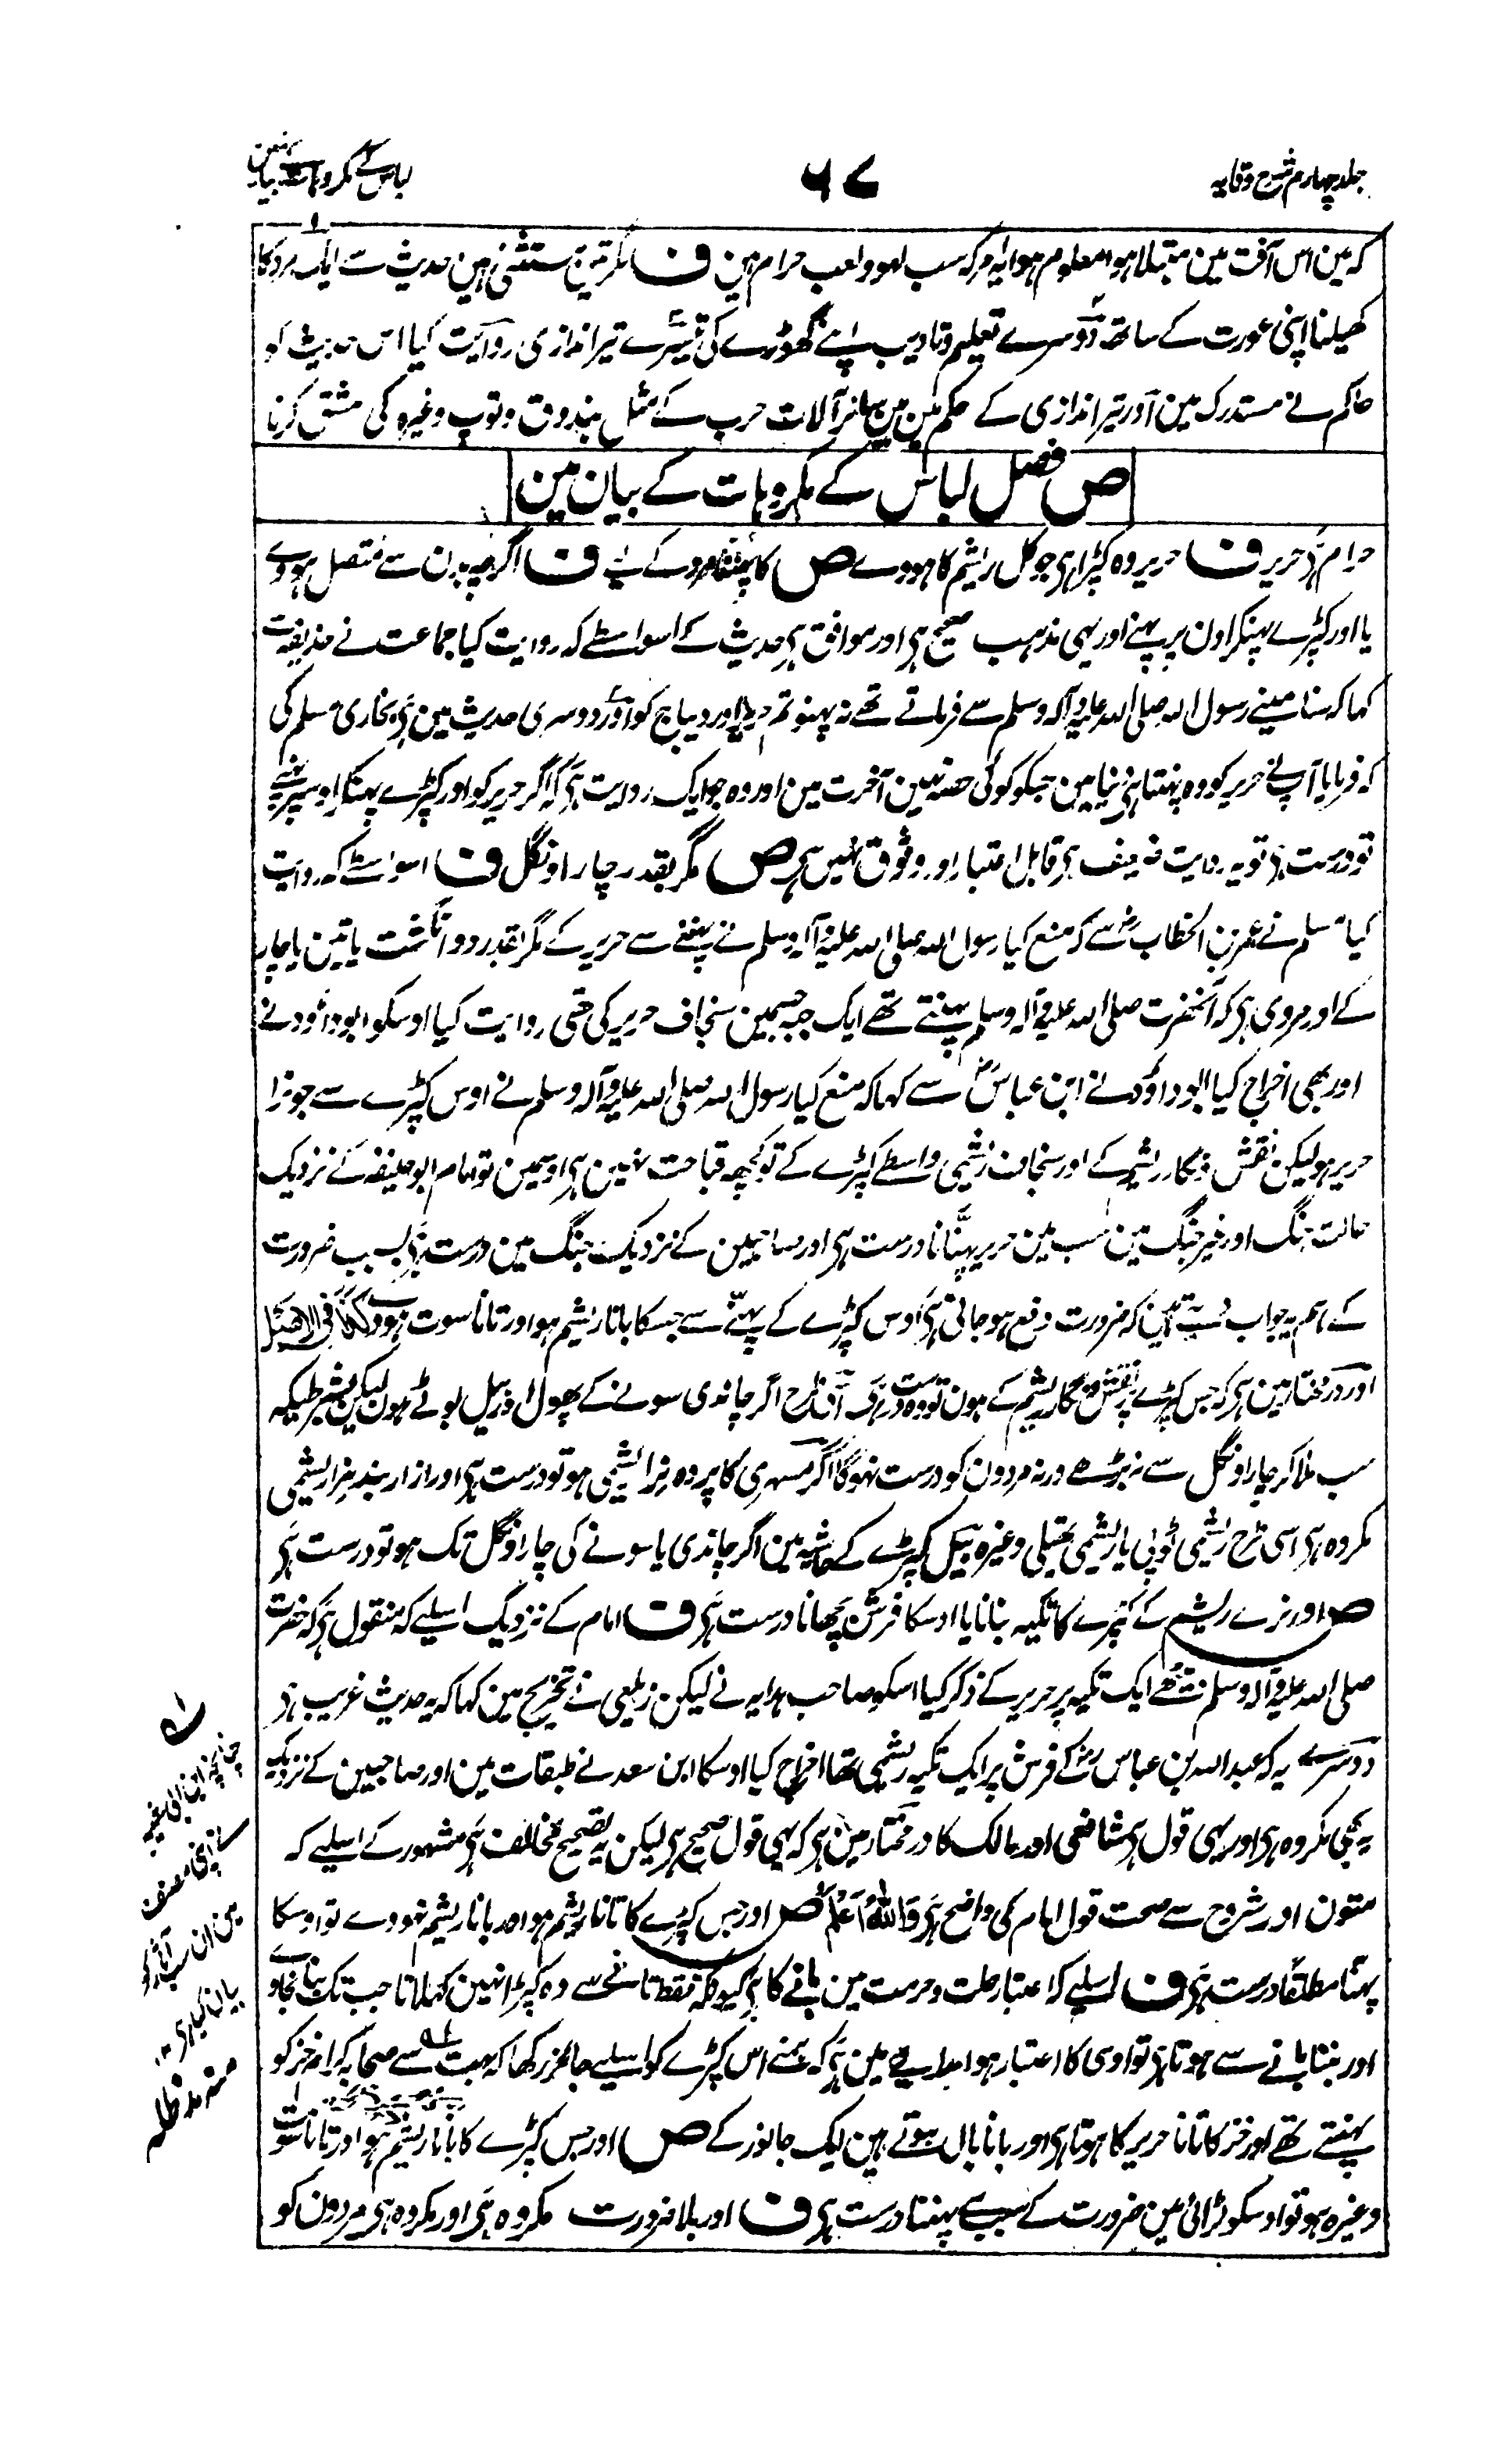 جلد چہارم شرح وقایہ
۶۷
لباس کے مکروہات کے بیان مین
کہ مین اس آفت مین مبتلا ہوا معلوم ہوا یہ امر کہ سب لہو ولعب حرام ہین ف مگر تین مستثنیٰ ہین حدیث سے ایک مرد کا
کھیلنا اپنی عورت کے ساتھ دوسرے تعلیم وتادیب اپنے گھوڑے کی تیسرے تیراندازی روایت کیا اس حدیث کو
حاکم نے مستدرک مین اور تیراندازی کے حکم مین ہین سائر آلات حرب کے مثل بندوق وتوپ وغیرہ کی مشق کرنا
ص فصل لباس کے مکروہات کے بیان مین
حرام ہی حریر ف حریر وہ کپڑا ہی جو کل ریشم کا ہووے ص کا پہننا مرد کے لیے ف اگرچہ بدن سے متصل ہووے
یا اور کپڑے پہنکر اون پر پہنے اور یہی مذہب صحیح ہی اور موافق ہی حدیث کے اسواسطے کہ روایت کیا جماعت نے حذیفہ سے
کہا کہ سنا مینے رسول اللہ صلی اللہ علیہ وآلہ وسلم سے فرماتے تھے نہ پہنو تم حریر اور دیباج کو اور دوسری حدیث مین ہی بخاری مسلم کی
کہ فرمایا آپ نے حریر کو وہ پہنتا ہی دنیا مین جسکو کوئی حصہ نہین آخرت مین اور وہ جو ایک روایت ہی کہ اگر حریر کو اور کپڑے پہنکر اوسپر پہنے
تو درست ہی تو یہ روایت ضعیف ہی قابل اعتبار اور وثوق نہین ہی ص مگر بقدر چار اونگل ف اسواسطے کہ روایت
کیا مسلم نے عمر بن الخطاب رض سے کہ منع کیا رسول اللہ صلی اللہ علیہ وآلہ وسلم نے پہننے سے حریر کے مگر بقدر دو انگشت یا تین یا چار
کے اور مروی ہی کہ آنحضرت صلی اللہ علیہ وآلہ وسلم پہنتے تھے ایک جبہ جسمین سنجاف حریر کی تھی روایت کیا اوسکو ابوداؤد نے
اور بھی اخراج کیا ابوداؤد نے ابن عباس رض سے کہا کہ منع کیا رسول اللہ صلی اللہ علیہ وآلہ وسلم نے اوس کپڑے سے جو نرا
حریر ہو لیکن نقش ونگار ریشم کے اور سنجاف ریشمی واسطے کپڑے کے تو کچھ قباحت نہین ہی اوسمین تو امام ابو حنیفہ کے نزدیک
حالت جنگ اور غیر جنگ مین سب مین حریر پہننا نا درست ہی اور صاحبین کے نزدیک جنگ مین درست ہی بسبب ضرورت
کے ہم یہ جواب دیتے ہین کہ ضرورت دفع ہو جاتی ہی اوس کپڑے کے پہننے سے جسکا بانا ریشم ہو اور تانا سوت ہووے کذا فی الاصل
اور درمختار مین ہی کہ جس کپڑے پر نقش ونگار ریشم کے ہون تو وہ درست ہی اسی طرح اگر چاندی سونے کے پھول اور بیل بوٹے ہون لیکن بشرطیکہ
سب ملاکر چار اونگل سے نہ بڑھے ورنہ مردون کو درست نہوگا اگر مسہری کا پردہ نرا ریشمی ہو تو درست ہی اور ازار بند نرا ریشمی
مکروہ ہی اسی طرح ریشمی ٹوپی یا ریشمی تھیلی وغیرہ بیل کپڑے کے حاشیہ مین اگر چاندی یا سونے کی چار اونگل تک ہو تو درست ہی
ص اور نرے ریشم کے کپڑے کا تکیہ بنانا یا اوسکا فرش بچھانا درست ہی ف امام کے نزدیک اسلیے کہ منقول ہی کہ حضرت
صلی اللہ علیہ وآلہ وسلم بیٹھے ایک تکیہ پر حریر کے ذکر کیا اسکو صاحب ہدایہ نے لیکن زیلعی نے تخریج مین کہا کہ یہ حدیث غریب ہی
دوسرے یہ کہ عبد اللہ بن عباس رض کے فرش پر ایک تکیہ ریشمی تھا اخراج کیا اوسکا ابن سعد نے طبقات مین اور صاحبین کے نزدیک
یہ بھی مکروہ ہی اور یہی قول ہی شافعی اور مالک کا درمختار مین ہی کہ یہی قول صحیح ہی لیکن یہ تصحیح مخالف ہی مشہور کے اسلیے کہ
متون اور شروح سے صحت قول امام کی واضح ہی واللہ اعلم ص اور جس کپڑے کا تانا ریشم ہو اور بانا ریشم نہووے تو اوسکا
پہننا مطلقاً درست ہی ف اسلیے کہ اعتبار حلت وحرمت مین بانے کا ہی کیونکہ فقط تانے سے وہ کپڑا نہین کہلاتا جب تک بنا نجاوے
اور بننا بانے سے ہوتا ہی تو اوسی کا اعتبار ہوا ہدایہ مین ہی کہ ہمنے اس کپڑے کو اسلیے جائز رکھا کہ بہت سے صحابہ کرام خز کو
پہنتے تھے اور خز کا تانا حریر کا ہوتا ہی اور بانا بال ہوتے ہین ایک جانور کے ص اور جس کپڑے کا بانا ریشم ہو اور تانا سوت
وغیرہ ہو تو اوسکو لڑائی مین ضرورت کے سبب سے پہننا درست ہی ف اور بلا ضرورت مکروہ ہی اور مکروہ ہی مردون کو
چنانچہ ابن ابی شیبہ
نے اپنی مصنف
مین ان سب آثار کو
بیان کیا ہی ۱۲
منہ مد ظلہ